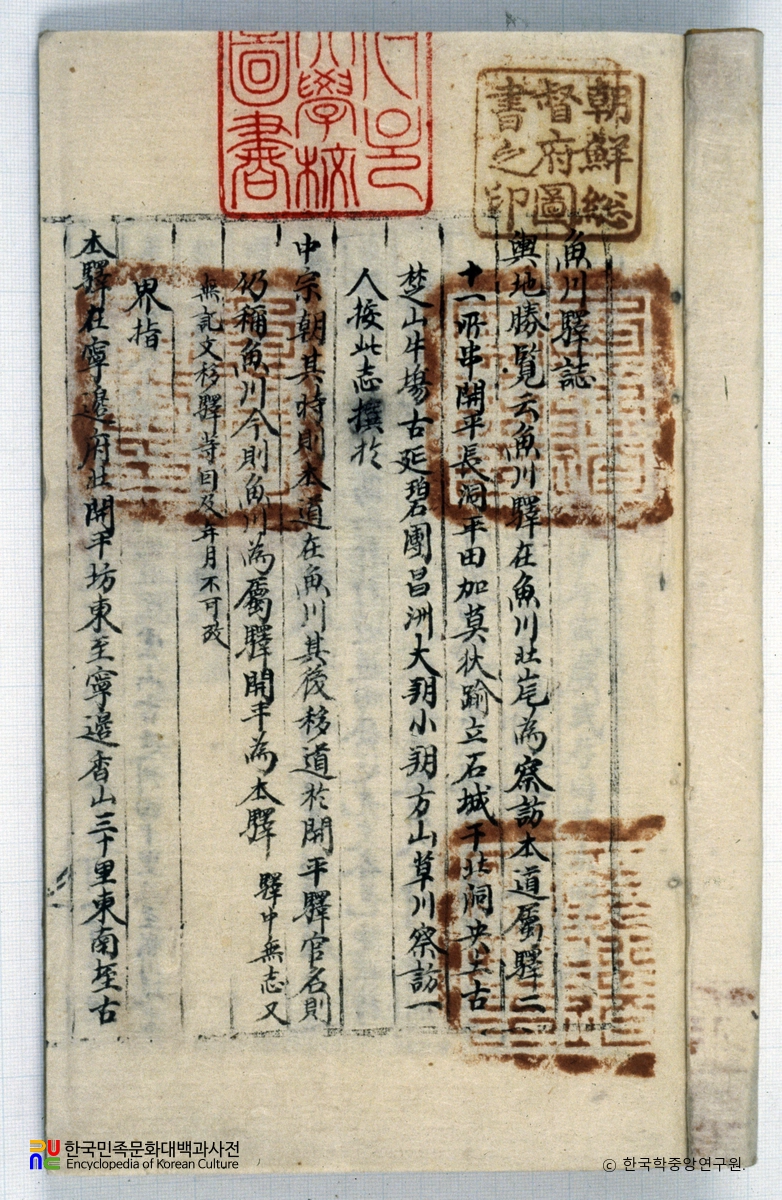 朝鮮総
督府圖
書之印
大學校
圖書
魚川驛誌
輿地勝覽云魚川驛在魚川北岸為察訪本道屬驛二
十一所串開平長洞平田加莫狄踰立石城干北洞央土古
楚山牛塲古延碧團昌洲大朔小朔方山草川察訪一
人按此志撰於
中宗朝其時則本道在魚川其後移道於開平驛官名則
仍稱魚川今則魚川為屬驛開平為本驛 驛中無志又
無記文移驛等因及年月不可改
界指
本驛在寧邊府北開平坊東至寧邊香山三十里東南至古
한국민족문화대백과사전
Encyclopedia of Korean Culture
ⓒ 한국학중앙연구원.